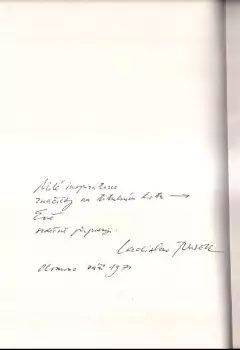 Milé inspirátorce
značky na titulním listu →
Evě
srdečně připisuji
Ladislav
Olomouc září 1971